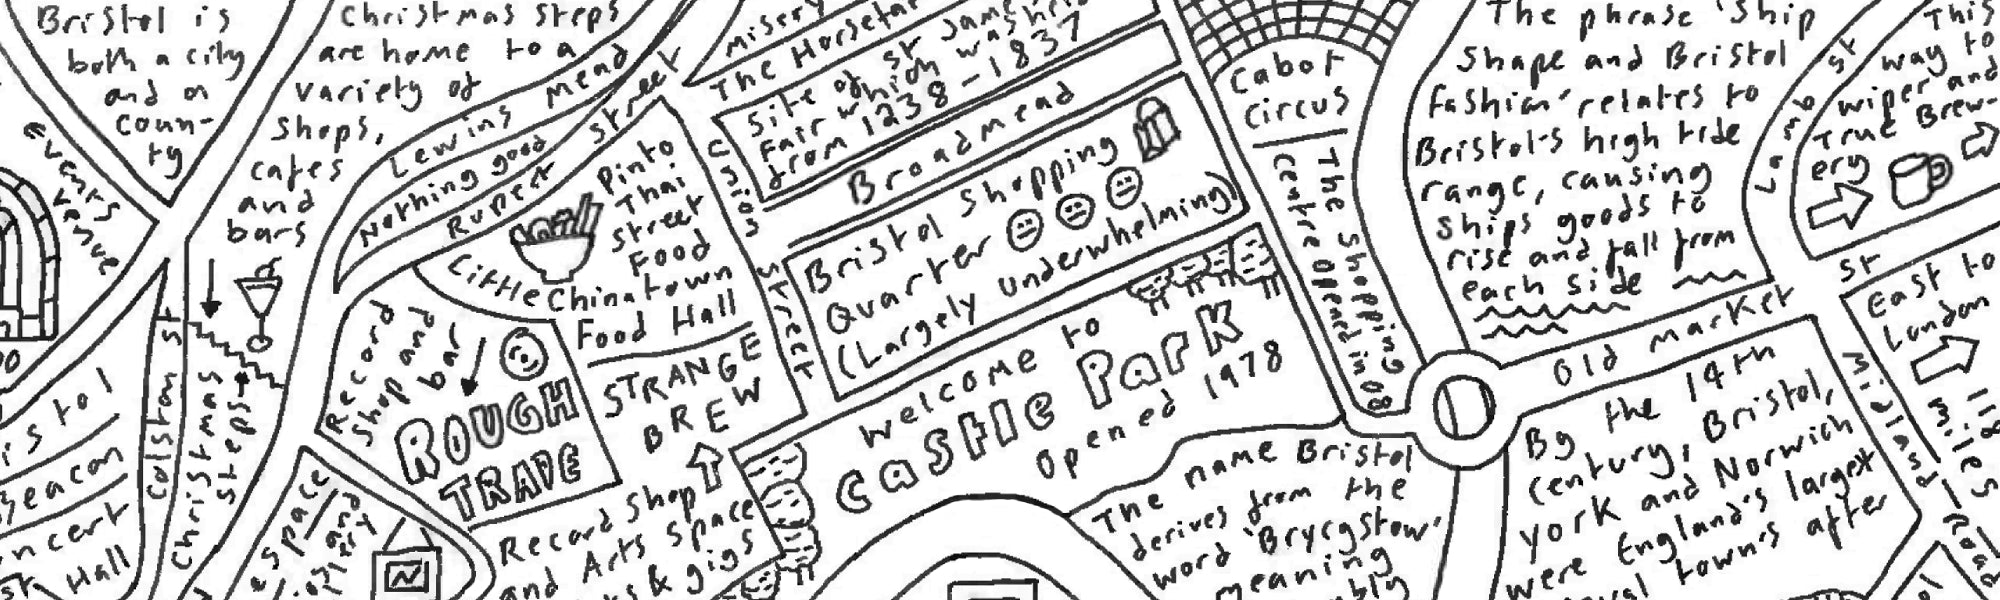 Bristol is
both a city
and a
coun-
ty
events
venue
Christmas Steps
are home to a
variety of
shops,
cafes
and
bars
Lewins Mead
Nothing good
Rupert Street
misery
The Horsefair
Site of St James
Fair which was held
from 1238-1837
Broadmead
Union
Street
Bristol Shopping
Quarter
(Largely underwhelming)
Cabot
Circus
The Shopping
Centre opened in 08
The phrase 'Ship
Shape and Bristol
Fashion' relates to
Bristol's high tide
range, causing
ships goods to
rise and fall from
each side
St
This
way to
wiper and
True Brew-
ery
Old Market
St
East to
London
118
miles
Midland
Road
Pinto
Thai
Street
Food
Little Chinatown
Food Hall
STRANGE
BREW
Record Shop
and Arts Space
& gigs
Record
Shop and
bar
ROUGH
TRADE
Welcome to
Castle Park
Opened 1978
The name Bristol
derives from the
word 'Brycgstow'
meaning
By the 14th
century, Bristol,
York and Norwich
were England's largest
town's after
Colston St
Christmas
Steps
Beacon
Hall
space
and